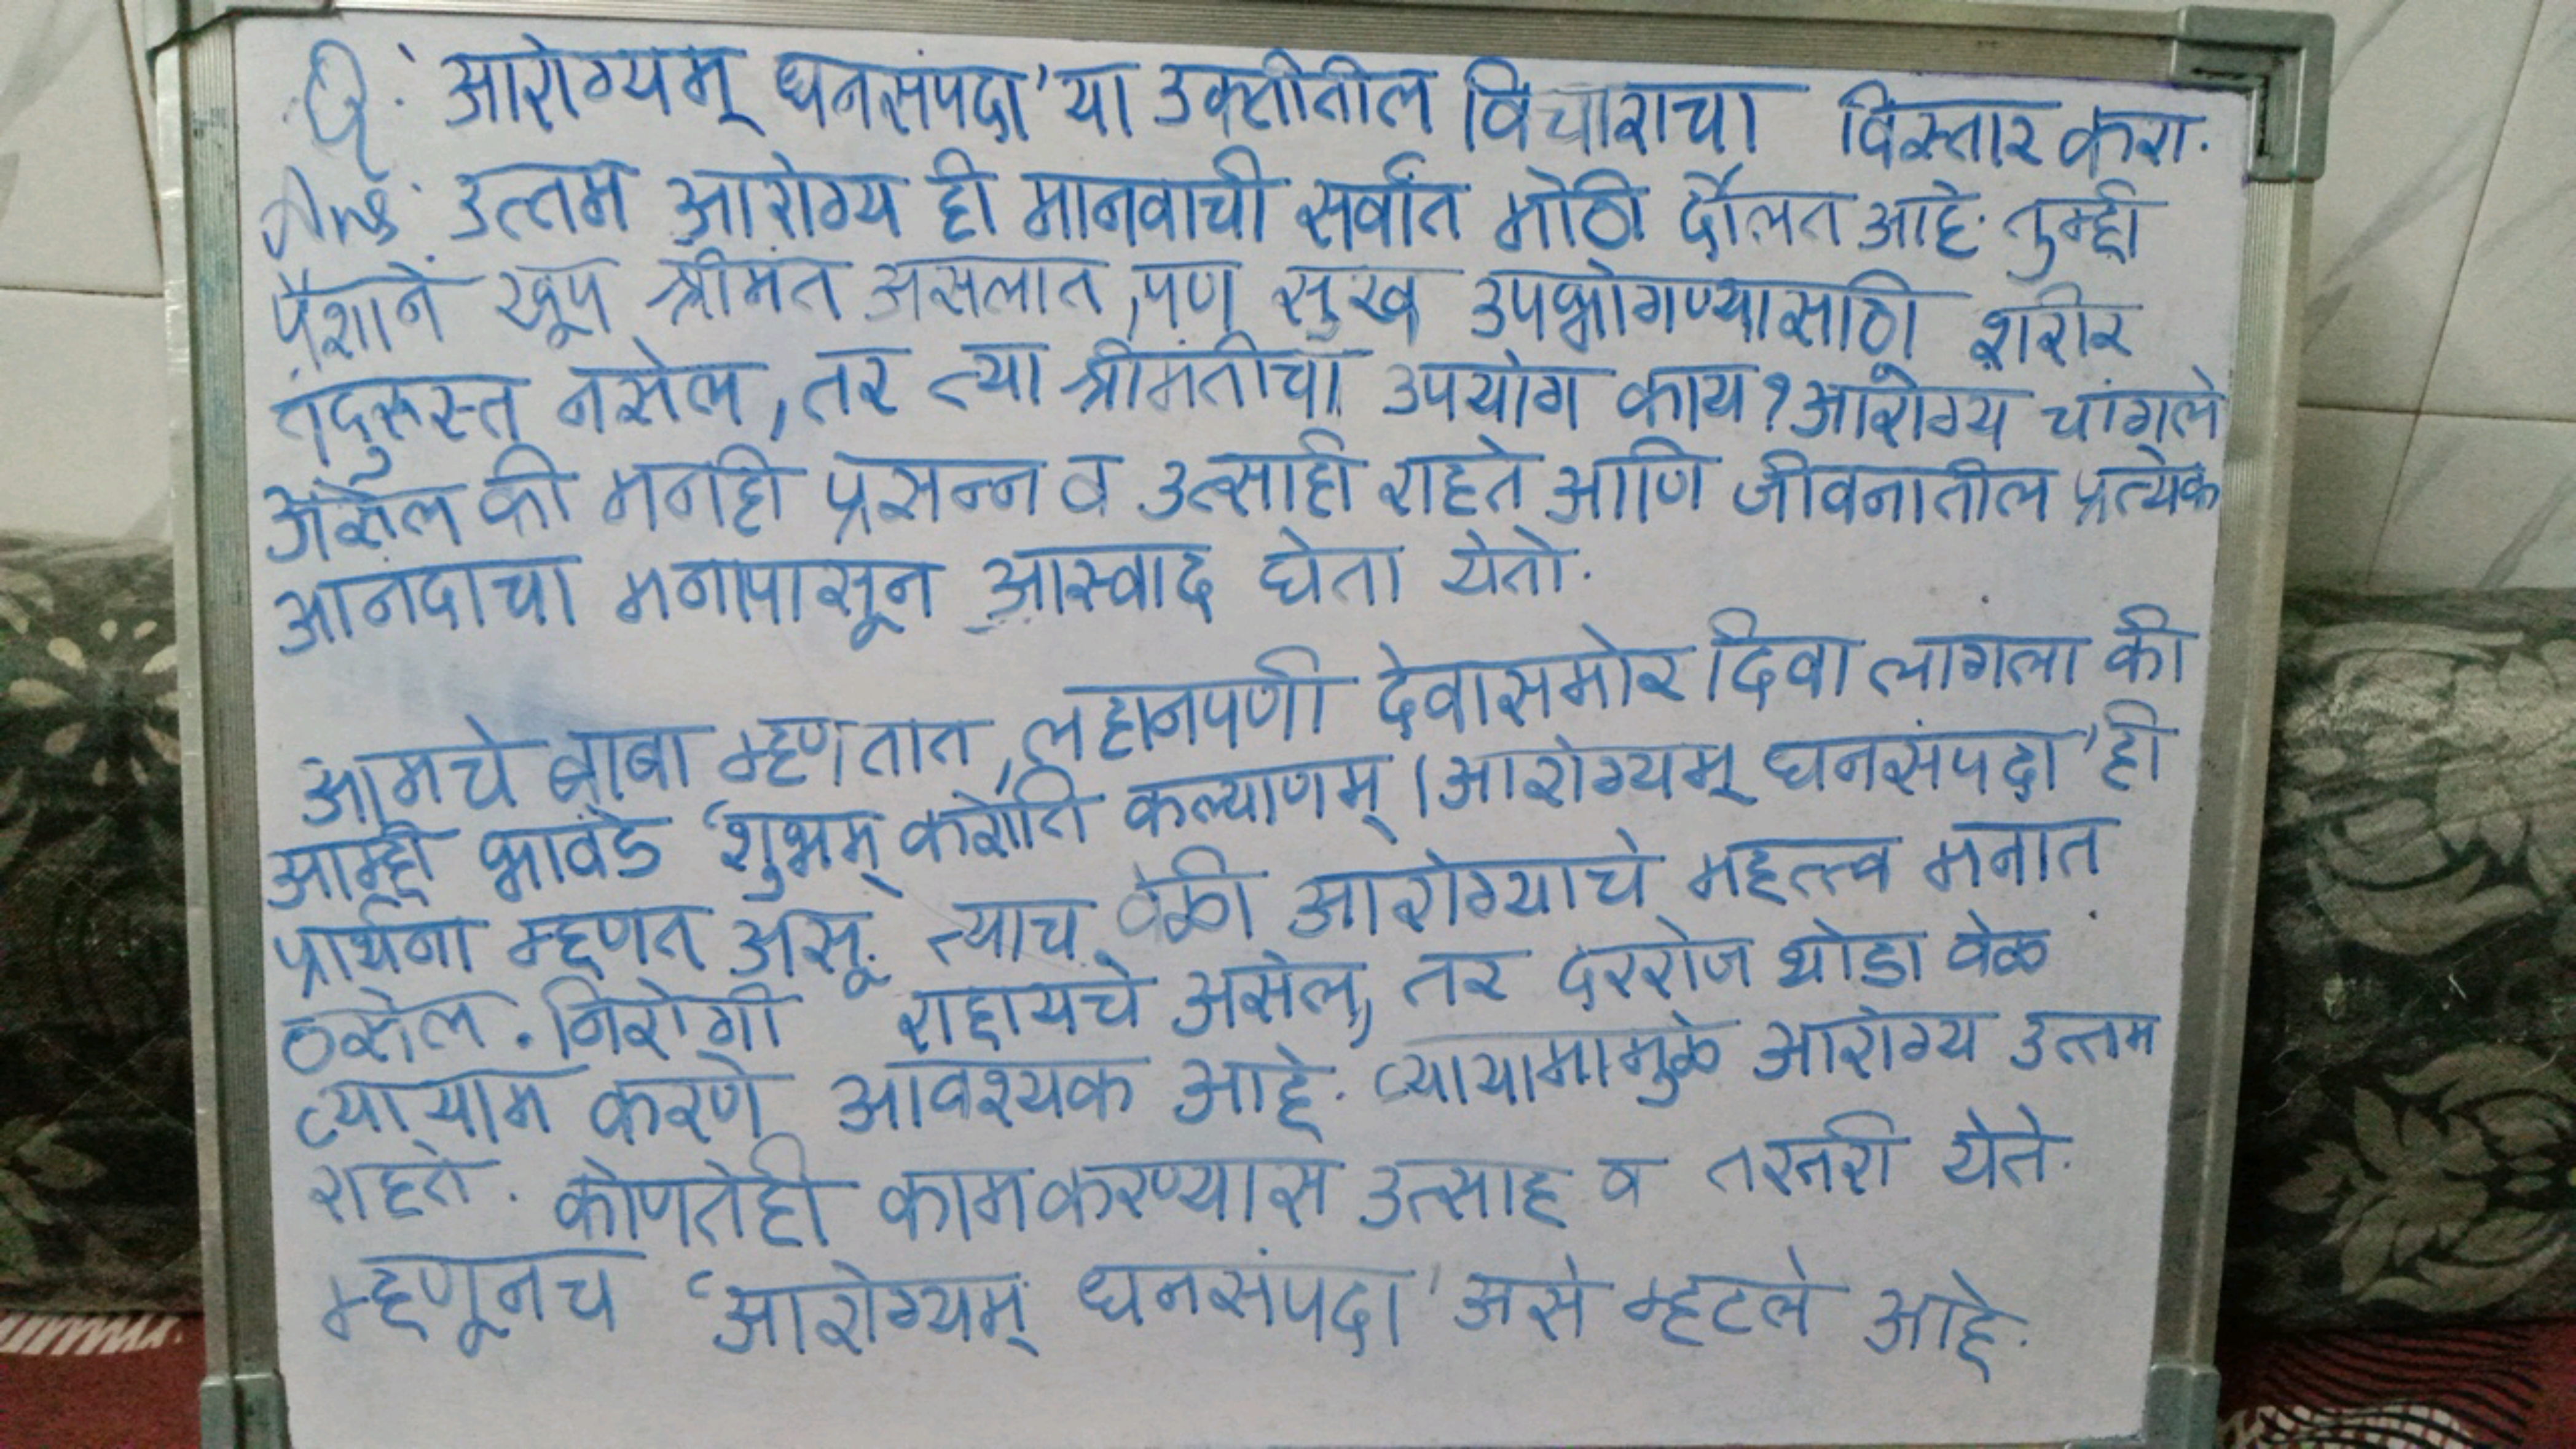 Q. 'आरोग्यम् धनसंपदा' या उक्तीतील विचाराचा विस्तार करा.
Ans: उत्तम आरोग्य ही मानवाची सर्वांत मोठी दौलत आहे. तुम्ही
पैशाने खूप श्रीमंत असलात, पण सुख उपभोगण्यासाठी शरीर
तंदुरुस्त नसेल, तर त्या श्रीमंतीचा उपयोग काय? आरोग्य चांगले
असेल की मनही प्रसन्न व उत्साही राहते आणि जीवनातील प्रत्येक
आनंदाचा मनापासून आस्वाद घेता येतो.
आमचे बाबा म्हणतात, लहानपणी देवासमोर दिवा लागला की
आम्ही भावंडे 'शुभम् करोति कल्याणम् । आरोग्यम् धनसंपदा' ही
प्रार्थना म्हणत असू. त्याच वेळी आरोग्याचे महत्त्व मनात
ठसेल. निरोगी राहायचे असेल, तर दररोज थोडा वेळ
व्यायाम करणे आवश्यक आहे. व्यायामामुळे आरोग्य उत्तम
राहते. कोणतेही काम करण्यास उत्साह व तरतरी येते.
म्हणूनच 'आरोग्यम् धनसंपदा' असे म्हटले आहे.